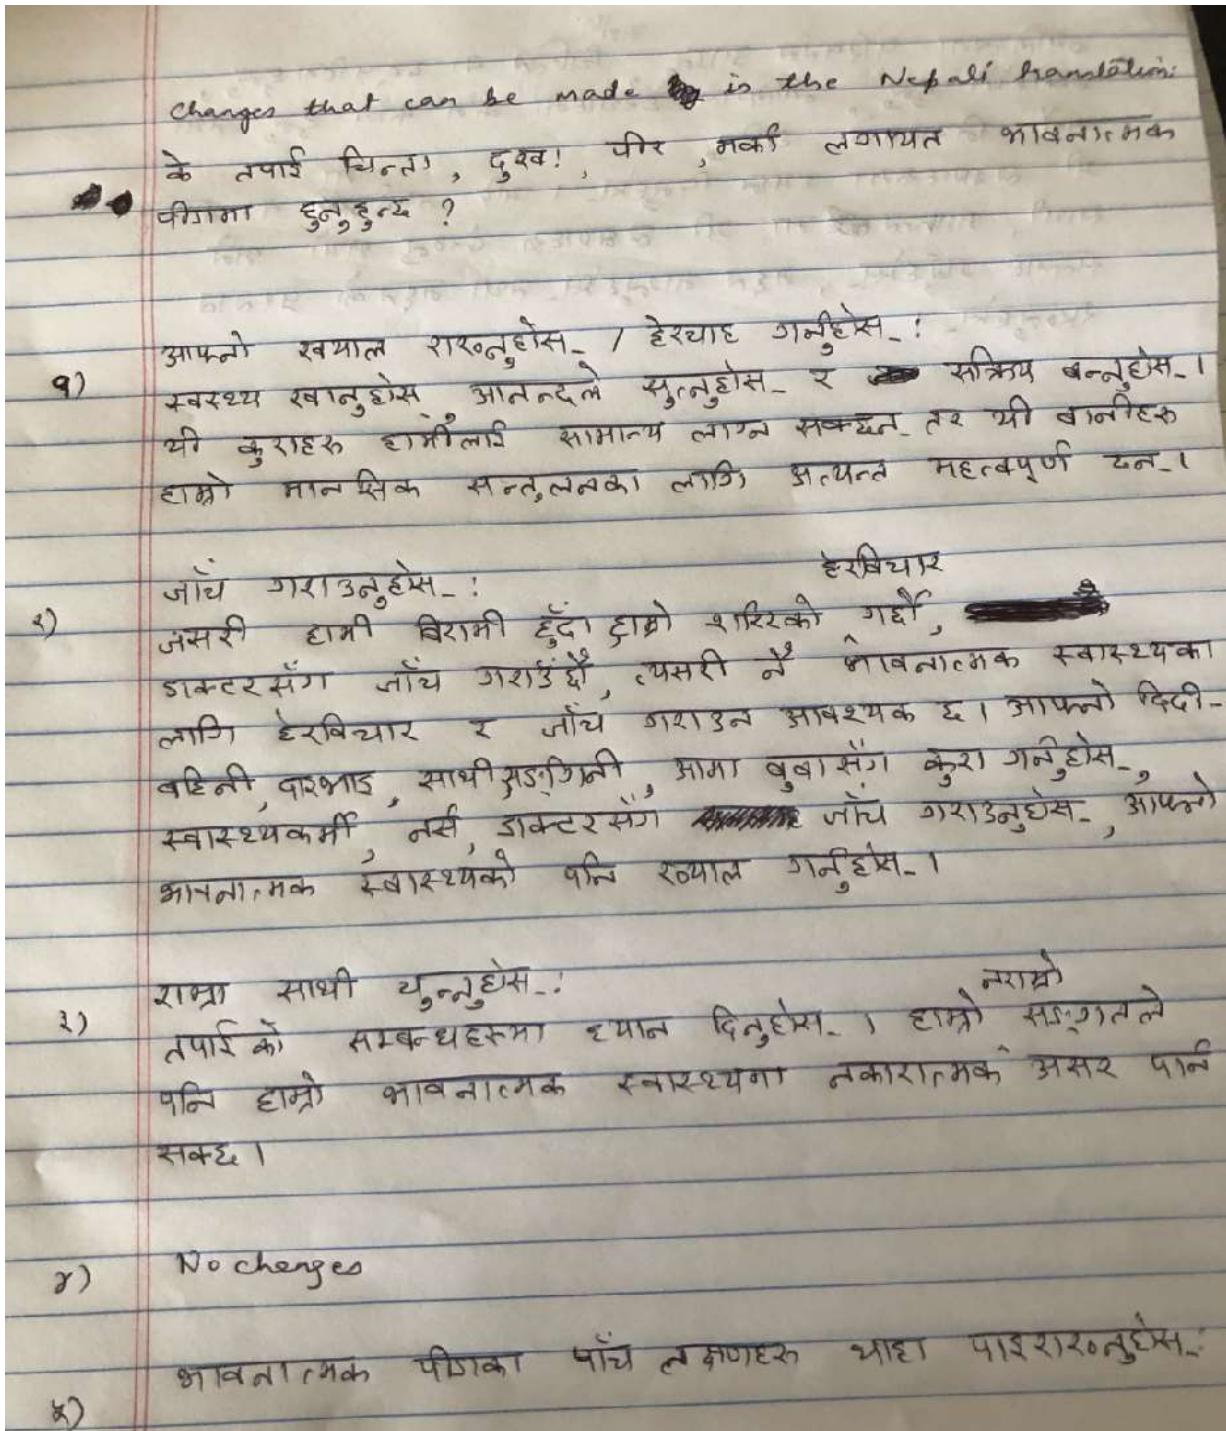 Changes that can be made is the Nepali translation:
के तपाई चिन्ता, दुख!, पीर, मर्का लगायत भावनात्मक
पीडामा हुनुहुन्छ ?
आफ्नो ख्याल राख्नुहोस् / हेरचाह गर्नुहोस् :
१) स्वस्थ्य खानुहोस्, आनन्दले सुत्नुहोस् र सक्रिय बन्नुहोस् ।
यी कुराहरु हामीलाई सामान्य लाग्न सक्छन् तर यी बानीहरु
हाम्रो मानसिक सन्तुलनका लागि अत्यन्त महत्वपूर्ण छन् ।
जाँच गराउनुहोस् : हेरविचार
२) जसरी हामी बिरामी हुँदा हाम्रो शरिरको गर्छौं,
डाक्टरसँग जाँच गराउँछौ, त्यसरी नै भावनात्मक स्वास्थ्यका
लागि हेरविचार र जाँच गराउन आवश्यक छ। आफ्नो दिदी-
बहिनी, दाइभाइ, साथीसङ्गिनी, आमा बुबासँग कुरा गर्नुहोस्,
स्वास्थ्यकर्मी, नर्स, डाक्टरसँग जाँच गराउनुहोस्, आफ्नो
भावनात्मक स्वास्थ्यको पनि ख्याल गर्नुहोस् ।
राम्रा साथी चुन्नुहोस् : नराम्रो
३) तपाईको सम्बन्धहरुमा ध्यान दिनुहोस् । हाम्रो सङ्गतले
पनि हाम्रो भावनात्मक स्वास्थ्यमा नकारात्मक असर पार्न
सक्छ।
४) No changes
५) भावनात्मक पीडाका पाँच लक्षणहरु थाहा पाइराख्नुहोस् :